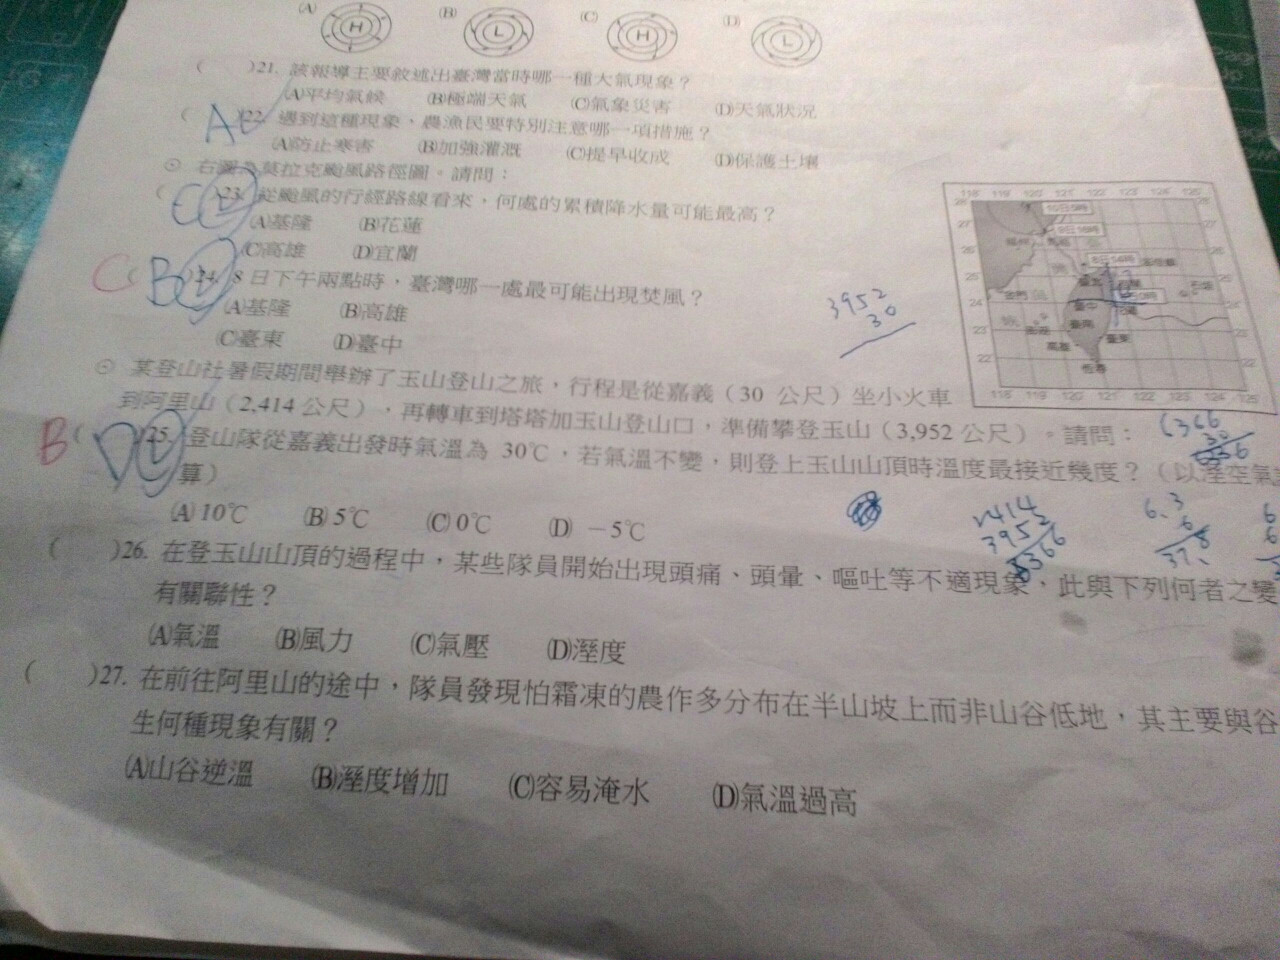 (A) (B) (C) (D)
H L H L
( )21. 該報導主要敘述出臺灣當時哪一種大氣現象？
(A)平均氣候 (B)極端天氣 (C)氣象災害 (D)天氣狀況
( A )22. 遇到這種現象，農漁民要特別注意哪一項措施？
(A)防止寒害 (B)加強灌溉 (C)提早收成 (D)保護土壤
⊙ 右圖為莫拉克颱風路徑圖。請問：
( C )23. 從颱風的行經路線看來，何處的累積降水量可能最高？
(A)基隆 (B)花蓮
(C)高雄 (D)宜蘭
C ( B )24. 8 日下午兩點時，臺灣哪一處最可能出現焚風？
(A)基隆 (B)高雄
(C)臺東 (D)臺中
118 119 120 121 122 123 124 125
28
27 27
26 26
25 25
24 24
23 23
22 22
118 119 120 121 122 123 124 125
10日5時
9日16時
8日14時
馬祖
金門
臺北
臺中
臺南
高雄
臺東
恆春
3952
30
⊙ 某登山社暑假期間舉辦了玉山登山之旅，行程是從嘉義（30 公尺）坐小火車
到阿里山（2,414 公尺），再轉車到塔塔加玉山登山口，準備攀登玉山（3,952 公尺）。請問：
B ( D )25. 登山隊從嘉義出發時氣溫為 30℃，若氣溫不變，則登上玉山山頂時溫度最接近幾度？（以溼空氣
算）
(A) 10℃ (B) 5℃ (C) 0℃ (D) －5℃
6366
30
2414
3952
6366
6.3
6
37.8
( )26. 在登玉山山頂的過程中，某些隊員開始出現頭痛、頭暈、嘔吐等不適現象，此與下列何者之變
有關聯性？
(A)氣溫 (B)風力 (C)氣壓 (D)溼度
( )27. 在前往阿里山的途中，隊員發現怕霜凍的農作多分布在半山坡上而非山谷低地，其主要與谷
生何種現象有關？
(A)山谷逆溫 (B)溼度增加 (C)容易淹水 (D)氣溫過高